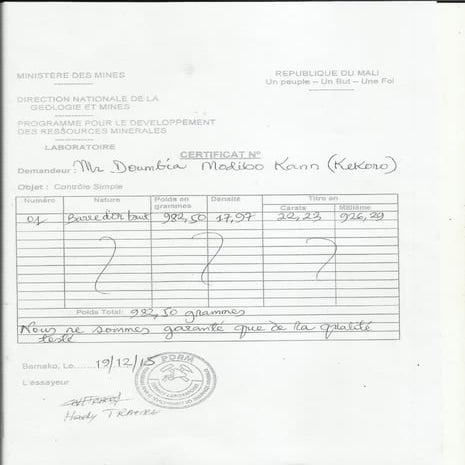 MINISTÈRE DES MINES
REPUBLIQUE DU MALI
Un peuple – Un But – Une Foi
DIRECTION NATIONALE DE LA
GEOLOGIE ET MINES
PROGRAMME POUR LE DEVELOPPEMENT
DES RESSOURCES MINERALES
LABORATOIRE
CERTIFICAT N°
Demandeur : Mr Doumbia Modibo Kann (Kekoro)
Objet : Contrôle Simple
Numéro Nature Poids en grammes Densité Titre en
Carats Millième
01 Barre d'or brut 982,50 17,97 22,23 926,29
Poids Total: 982,50 grammes
Nous ne sommes garante que de la qualité
testé
Bamako, Le 19/12/15
PDRM
L'essayeur